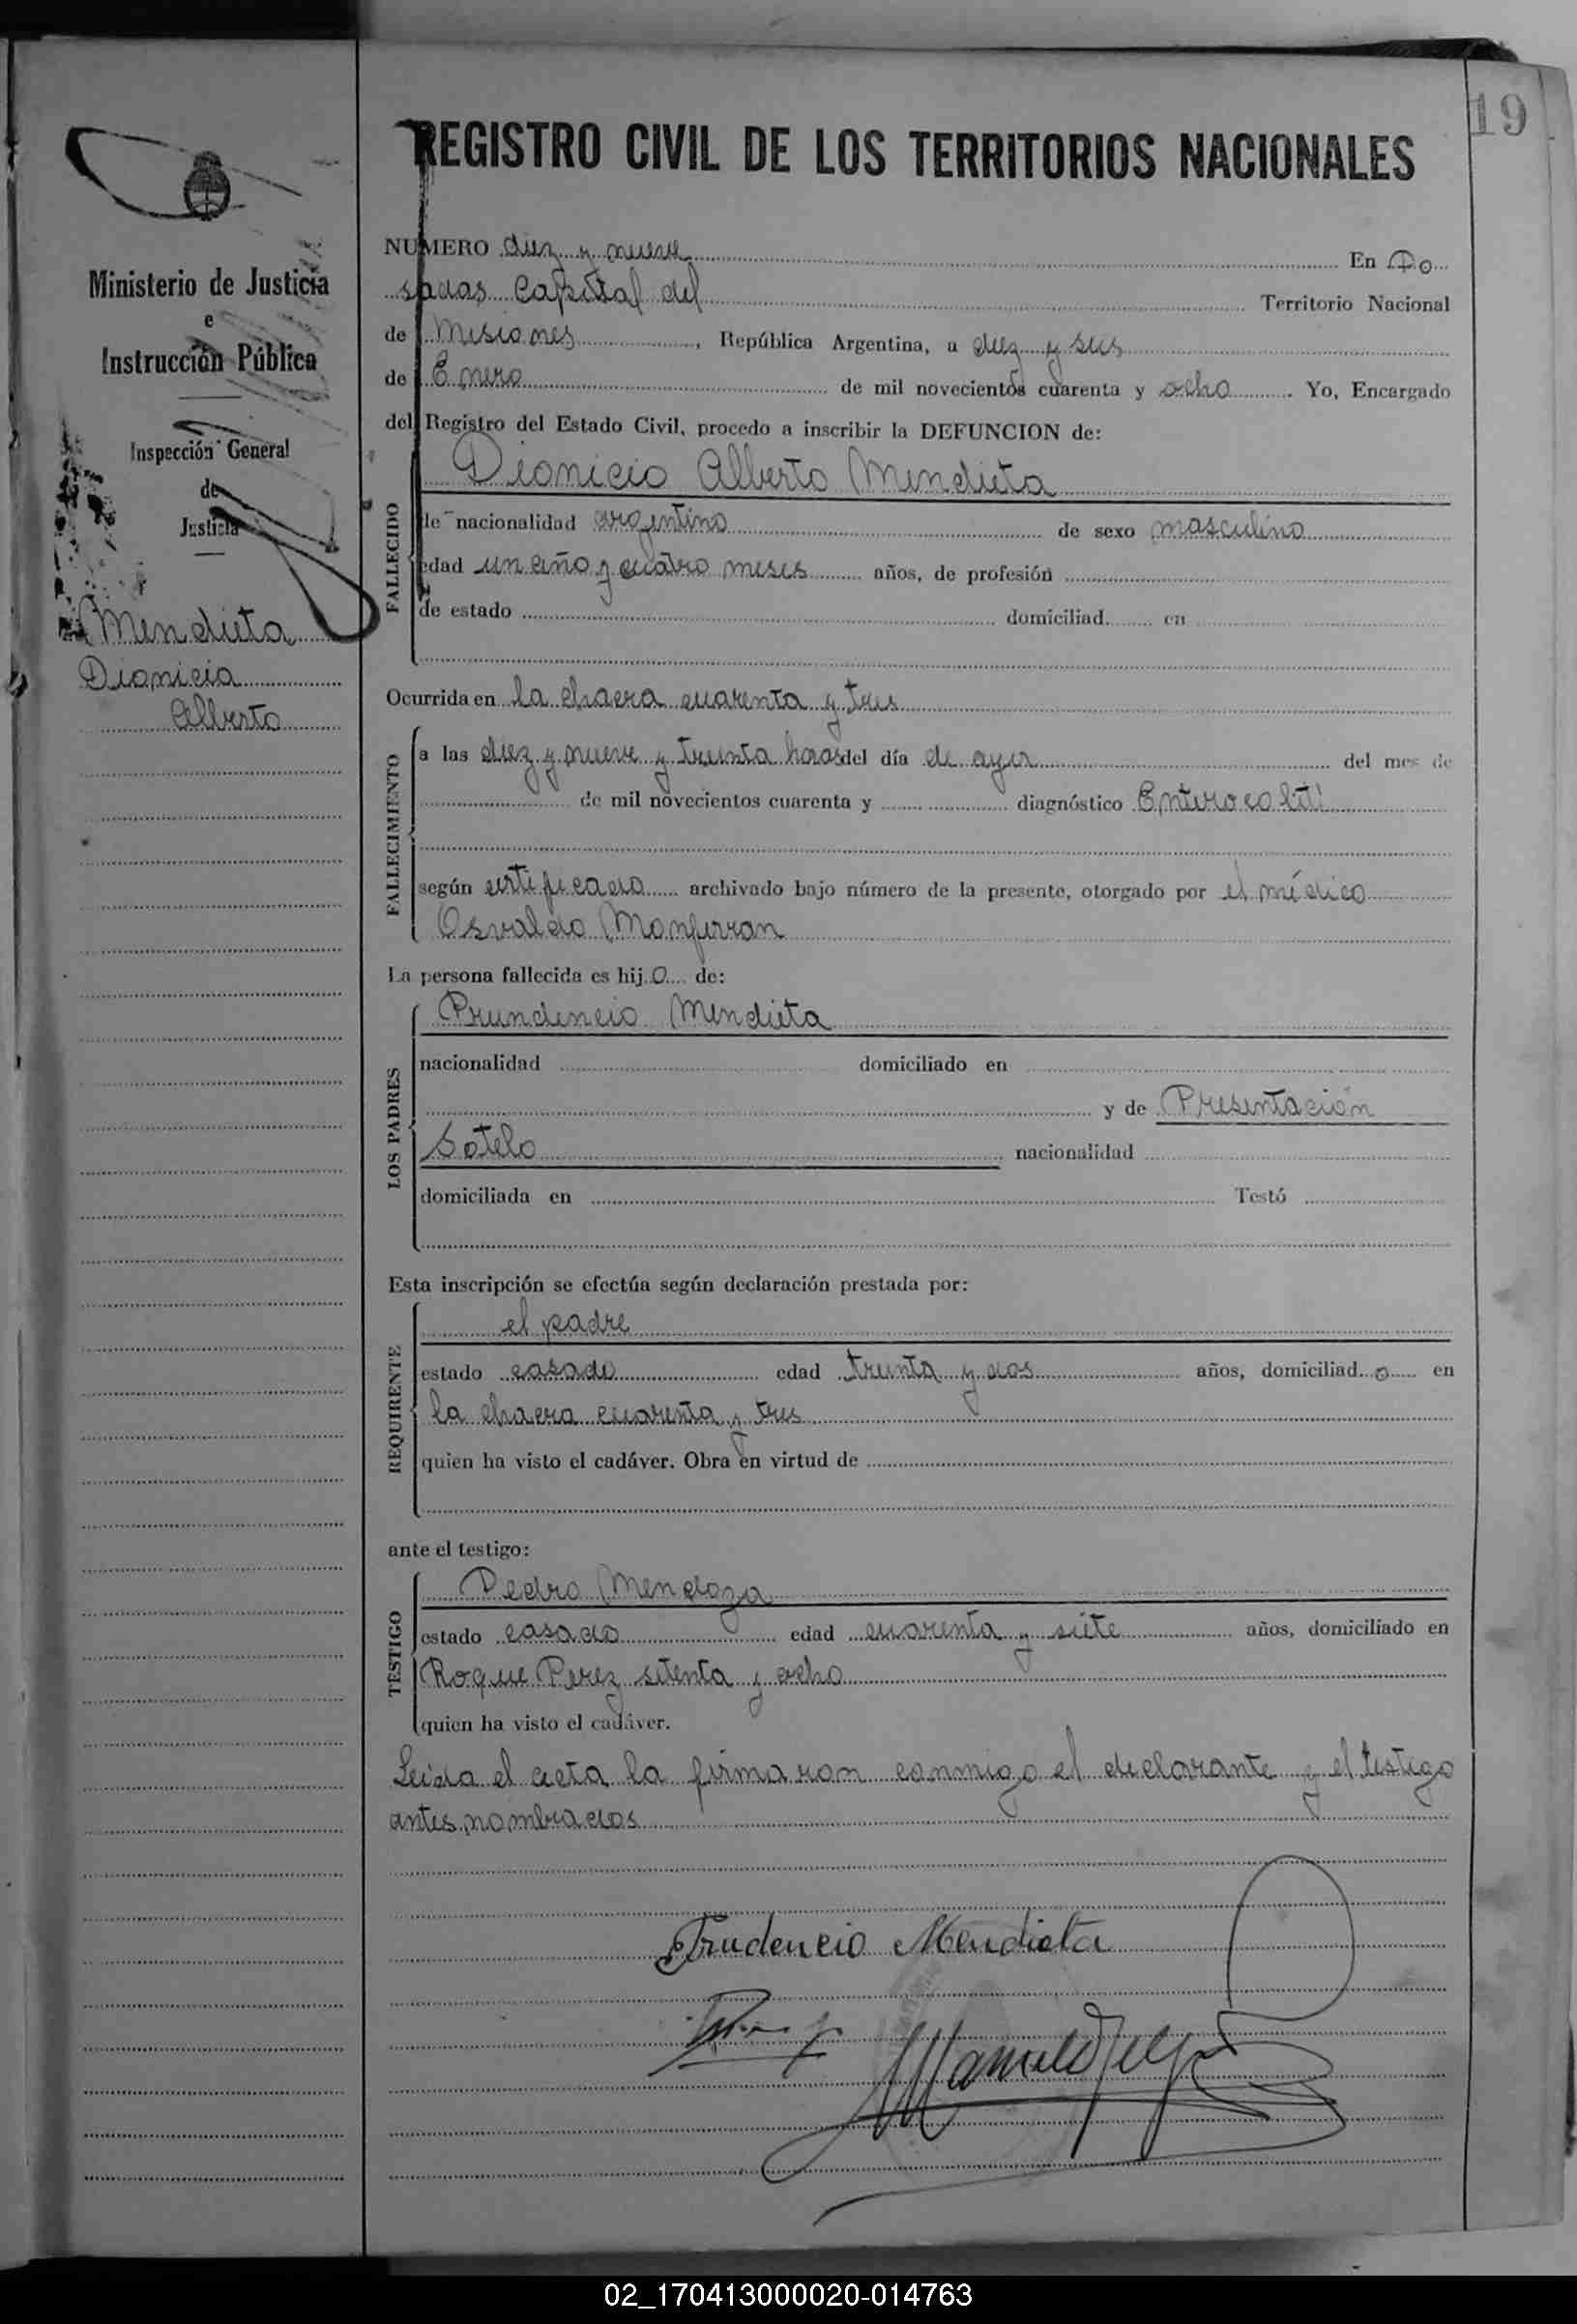 19
REGISTRO CIVIL DE LOS TERRITORIOS NACIONALES
Ministerio de Justicia
e
Instrucción Pública
Inspección General
de
Justicia
Mendieta
Dionicio
Alberto
NUMERO diez y nueve En Po
sadas Capital del Territorio Nacional
de Misiones, República Argentina, a diez y seis
de Enero de mil novecientos cuarenta y ocho. Yo, Encargado
del Registro del Estado Civil, procedo a inscribir la DEFUNCION de:
FALLECIDO
Dionicio Alberto Mendieta
de nacionalidad argentino de sexo masculino
edad un año y cuatro meses años, de profesión
de estado domiciliad en
Ocurrida en la chacra cuarenta y tres
FALLECIMIENTO
a las diez y nueve y treinta horas del día de ayer del mes de
de mil novecientos cuarenta y diagnóstico Enterocoliti
según certificado archivado bajo número de la presente, otorgado por el médico
Osvaldo Monferran
La persona fallecida es hijo de:
LOS PADRES
Prundencio Mendieta
nacionalidad domiciliado en
y de Presentación
Sotelo nacionalidad
domiciliada en Testó
Esta inscripción se efectúa según declaración prestada por:
REQUIRENTE
el padre
estado casado edad treinta y dos años, domiciliado en
la chacra cuarenta y tres
quien ha visto el cadáver. Obra en virtud de
ante el testigo:
TESTIGO
Pedro Mendoza
estado casado edad cuarenta y siete años, domiciliado en
Roque Perez setenta y ocho
quien ha visto el cadáver.
Leida el acta la firmaron conmigo el declarante y el testigo
antes nombrados
Prudencio Mendieta
02_170413000020-014763